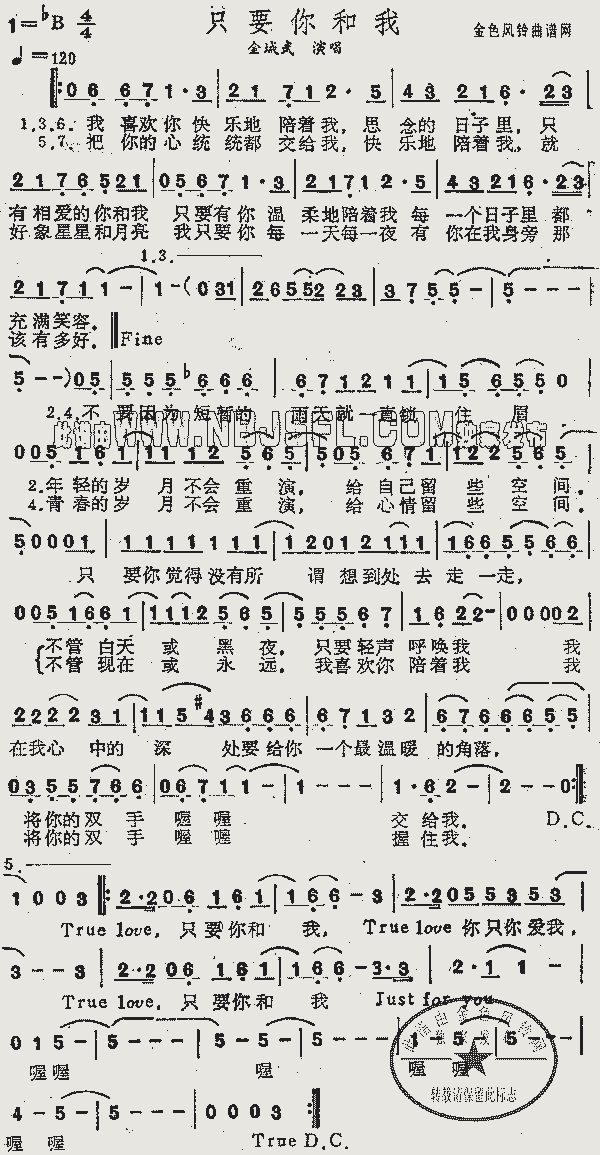 只要你和我
1=♭B 4/4
♩=120
金城武 演唱
金色风铃曲谱网
‖: 0 6 6 7 1· 3 | 2 1 7 1 2· 5 | 4 3 2 1 6· 2 3 |
1.3.6. 我 喜欢你 快 乐地 陪着我, 思 念的 日子里, 只
5.7. 把 你的心 统 统都 交给我, 快 乐地 陪着我, 就
2 1 7 6 5 2 1 | 0 5 6 7 1· 3 | 2 1 7 1 2· 5 | 4 3 2 1 6· 2 3
有 相爱的你和我 只要有你 温 柔地陪着我 每 一个日子里 都
好象星星和月亮 我只要你 每 一天每一夜 有 你在我身旁 那
1.3.
2 1 7 1 1 - | 1 - ( 0 3 1 | 2 6 5 5 2 2 3 | 3 7 5 5 - | 5 - - -
充满笑容.
该有多好. Fine
5 - - ) 0 5 | 5 5 5 ♭6 6 6 | 6 7 1 2 1 1 | 1 5 6 5 5 0
2.4. 不 要因为 短暂的 雨天就一直锁 住 眉
WWW.NBJSFL.COM
0 0 5 1 6 1 | 1 1 1 2 5 6 5 | 5 0 5 6 7 1 | 1 2 2 5 6 5
2.年 轻的岁 月不会 重 演, 给 自己留 些 空 间.
4.青 春的岁 月不会 重 演, 给 心情留 些 空 间.
5 0 0 0 0 1 | 1 1 1 1 1 1 1 | 1 2 0 1 2 1 1 1 | 1 6 6 5 5 6 6
只 要你觉得没有所 谓 想到处 去 走 一走,
0 0 5 1 6 6 1 | 1 1 1 2 5 6 5 | 5 5 5 5 6 7 | 1 6 2 2 - | 0 0 0 0 0 2
不管 白天 或 黑 夜, 只要轻声 呼唤我 我
不管 现在 或 永 远, 我喜欢你 陪着我 我
2 2 2 2 3 1 | 1 1 5 #4 3 6 6 6 | 6 7 1 3 2 | 6 7 6 6 6 5 5
在我心 中的 深 处要给你 一个最温暖 的角落,
0 3 5 5 5 7 6 6 | 0 6 7 1 1 - | 1 - - - | 1· 6 2 - | 2 - - 0 :‖
将你的双 手 喔 喔 交 给我. D.C.
将你的双 手 喔 喔 握 住我.
5.
1 0 0 0 3 ‖: 2· 2 0 6 1 6 1 | 1 6 6 - 3 | 2· 2 0 5 5 3 5 3 |
True love, 只 要你和 我, True love 你只你爱我,
3 - - 3 | 2· 2 0 6 1 6 1 | 1 6 6 - 3· 3 | 2· 1 1 - |
True love, 只 要你和 我 Just for you
0 1 5 - | 5 - - - | 5 - 5 - | 5 - - - | 1 - 5 - | 5 - - -
喔喔 喔 喔 喔
转载请保留此标志
4 - 5 - | 5 - - - | 0 0 0 3 :‖
喔 喔 True D.C.